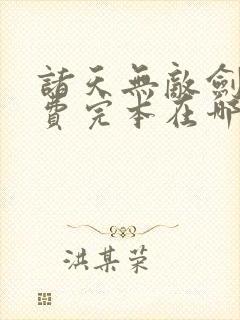 諸天無敵劍
費完本在哪
洪某荣